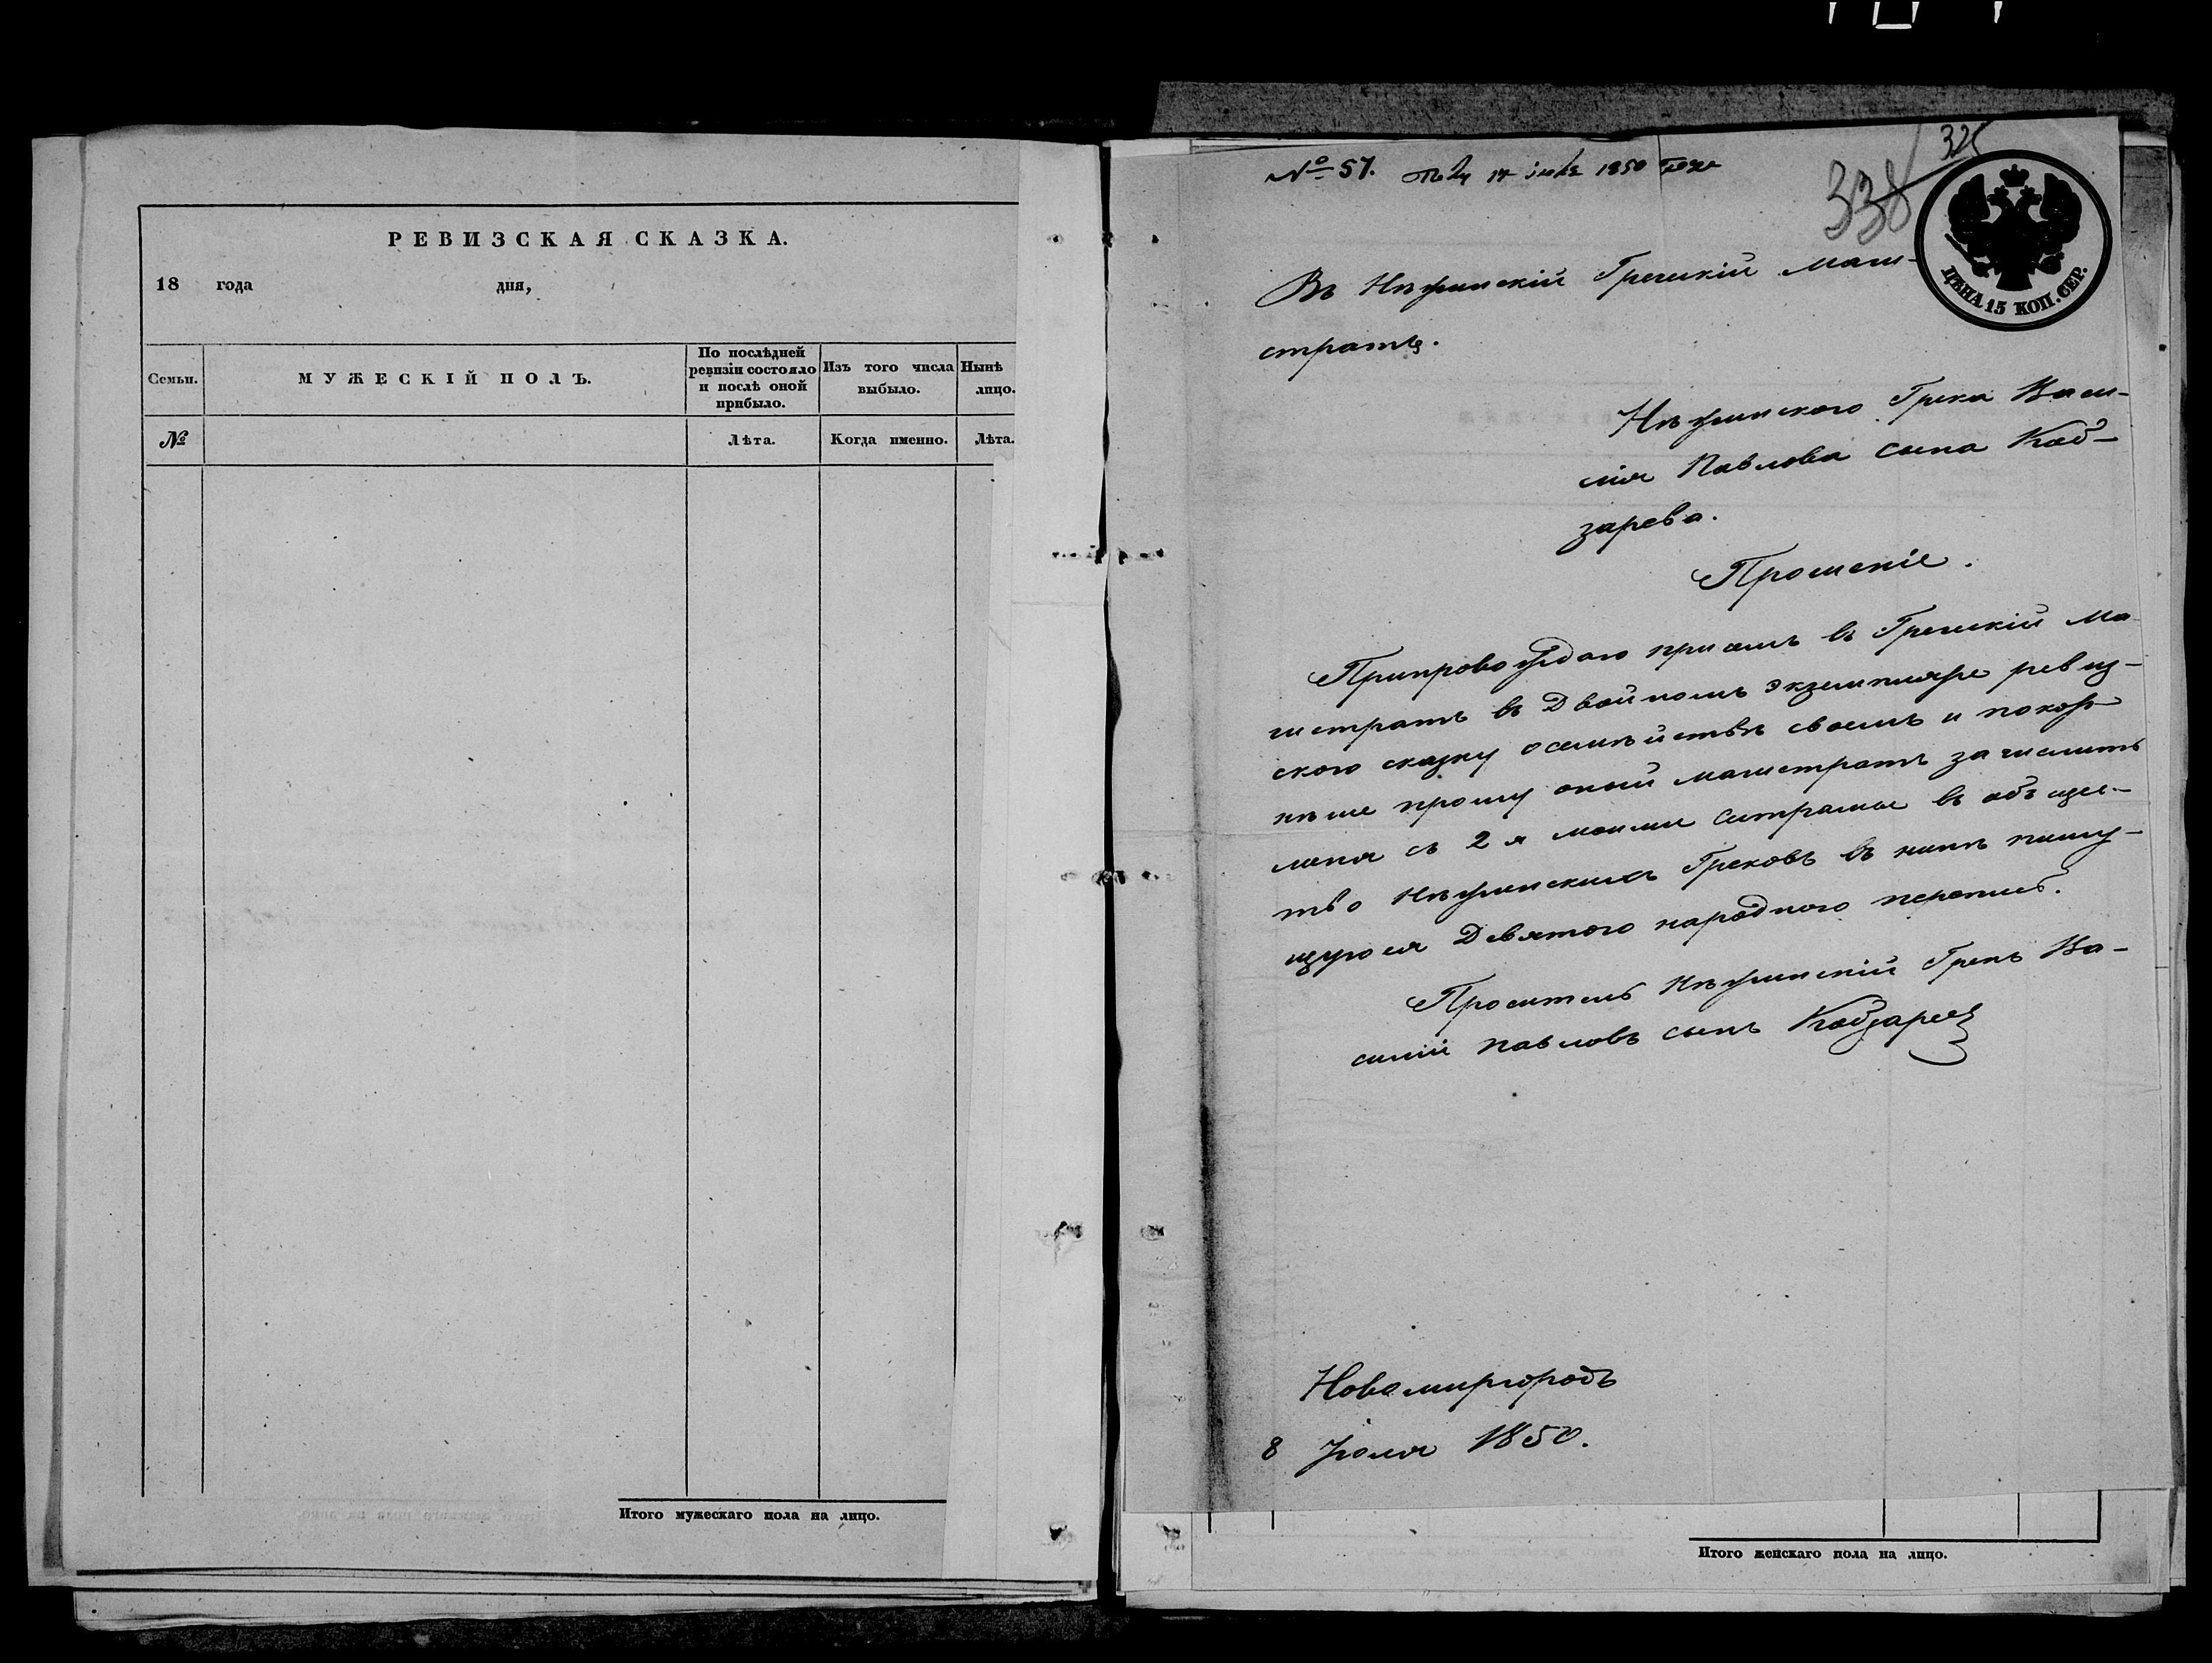 РЕВИЗСКАЯ СКАЗКА.
18 года дня,
Семьи.
МУЖЕСКІЙ ПОЛЪ.
По послѣдней
ревизіи состояло
и послѣ оной
прибыло.
Изъ того числа
выбыло.
Нынѣ
лицо.
№
Лѣта.
Когда именно.
Лѣта.
Итого мужескаго пола на лицо.
№ 57. 17 1850 года
325
338
ЦѢНА 15 КОП. СЕР.
Въ Нѣжинскій Греческій Маги-
стратъ.
Нѣжинского Грека Васи-
лія Павлова сына Каб-
зарева.
Прошеніе.
Припровождаю при семъ въ Греческій Ма
гистратъ въ Двойномъ экземпляре ревиз-
ского сказку о семѣйствѣ своемъ и покор-
нѣше прошу оный магистратъ зачислить
меня съ 2 я моими въ общес-
тво Нѣжинскихъ Грековъ въ нинѣ пишу-
щуюся Девятого народного перепись.
Проситель Нѣжинскій Грекъ Ва-
силій Павловъ сынъ Кабзаревъ
Новомиргородъ
8 Іюля 1850.
Итого женскаго пола на лицо.